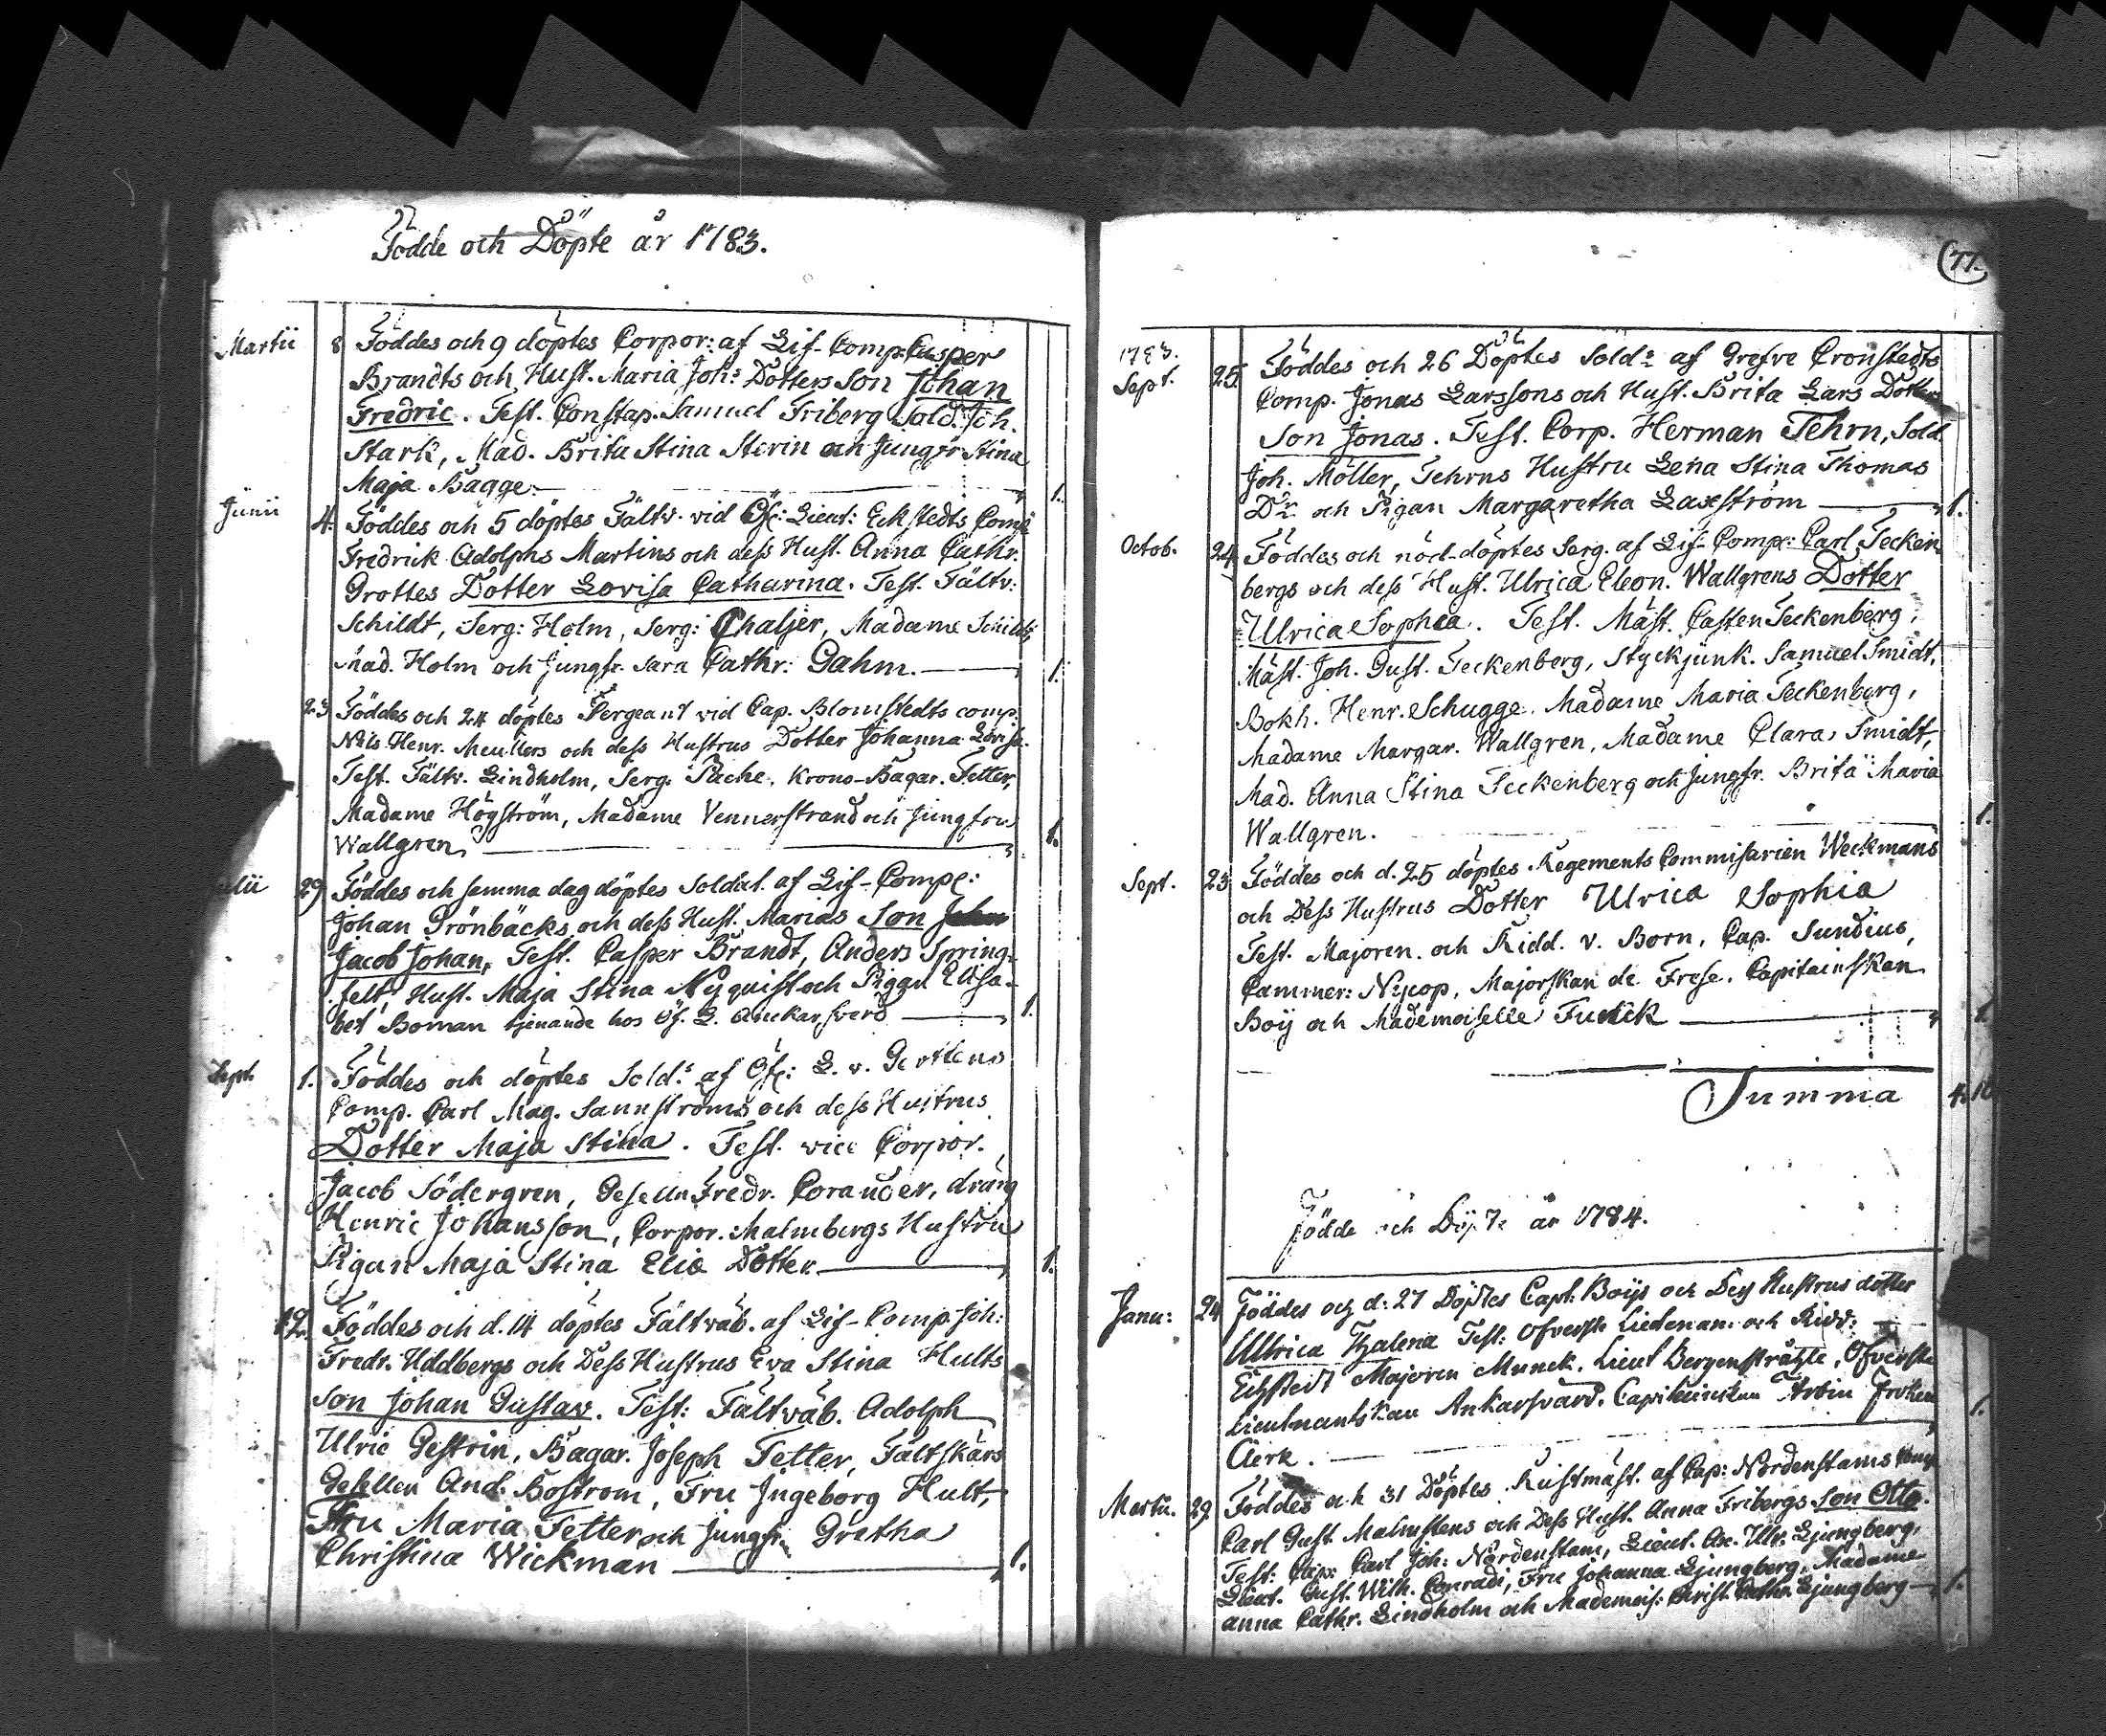 Födde och Döpte år 1783.
Martii 8 Föddes och 9 döptes Corpor: af Lif-Comp. Casper
Brandts och Hust. Maria Johs Dotters Son Johan
Fredric. Test. Constap. Samuel Friberg Sold. Joh.
Stark, Mad. Brita Stina Sterin och Jungfr Stina
Maja Bagge. 1.
Junii 4. Föddes och 5 döptes Fältv. vid Öf: Lieut: Eckstedts Comp
Fredrik Adolphs Martins och dess Hust. Anna Cathr.
Grottes Dotter Lovisa Catharina. Test. Fältv:
Schildt, Serg: Holm, Serg: Chaljer, Madame Schildt,
Mad. Holm och Jungfr. Sara Cathr: Gahm. 1.
23 Föddes och 24 döptes Sergeant vid Cap. Blomstedts comp.
Nils Henr. Meullers och dess Hustrus Dotter Johanna Lovisa.
Test. Fältv. Lindholm, Serg. Pache, Krono-Bagar. Tetter,
Madame Högström, Madame Vennerstrand och Jungfru
Wallgren 1.
29 Föddes och samma dag döptes Soldat. af Lif-Comp:
Johan Grönbäcks och dess Hust. Marias Son
Jacob Johan, Test. Casper Brandt, Anders Spring-
felt, Hust. Maja Stina Nyquist och Pigan Elisa-
bet Boman tjenande hos Öf. L. Anckarsverd 1.
Sept. 1. Föddes och döptes Sold: af Öf: L. v. Gerttens
Comp. Carl Mag. Sannströms och dess Hustrus
Dotter Maja Stina. Test. vice Corpor.
Jacob Södergren, Gesellen Fredr. Corander, dräng
Henric Johansson, Corpor. Malmbergs Hustru
Pigan Maja Stina Elie Dotter 1.
12. Föddes och d. 14 döptes Fältväb. af Lif-Comp. Joh:
Fredr. Uddbergs och Dess Hustrus Eva Stina Hults
Son Johan Gustav. Test: Fältväb. Adolph
Ulric Gestrin, Bagar. Joseph Tetter, Fältskärs
Gesellen And. Boström, Fru Ingeborg Hult,
Fru Maria Tetter och Jungfr. Gretha
Christina Wickman 1.
77.
1783.
Sept. 25 Föddes och 26 Döptes Sold: af Grefve Cronstedts
Comp. Jonas Larssons och Hust. Brita Lars Dotters
Son Jonas. Test. Corp. Herman Tehrn, Sold.
Joh. Möller, Tehrns Hustru Lena Stina Thomas
Dr. och Pigan Margaretha Laxström 1.
Octob. 24 Föddes och nöd-döptes Serg. af Lif-Comp: Carl Tecken
bergs och dess Hust. Ulrica Eleon. Wallgrens Dotter
Ulrica Sophia. Test. Mäst. Casten Teckenberg,
Mäst. Joh. Gust. Teckenberg, Styckjunk. Samuel Smidt,
Bokh. Henr. Schugge. Madame Maria Teckenberg,
Madame Margar. Wallgren, Madame Clara Smidt,
Mad. Anna Stina Teckenberg och Jungfr. Brita Maria
Wallgren. 1.
Sept. 23 Föddes och d. 25 döptes Regements Commisarien Weckmans
och Dess Hustrus Dotter Ulrica Sophia
Test. Majoren och Ridd. v. Born, Cap. Sundius,
Cammer: Nycop, Majorskan de Frese, Capitainskan
Boij och Mademoiselle Funck 1.
Summa 4. 10
Födde och Döpte år 1784.
Janu: 24 Föddes och d: 27 Döptes Capt: Boijs och Dess Hustrus dotter
Ullrica Test: Öfverste Lieutenan: och Ridd:
Majoren Munck, Lieut Bergenstråhle, Öfverste
Lieutnantskan Ankarsvärd, Capiteinskan Fröken
Aerk. 1.
Martii. 29 Föddes och 31 Döptes Rustmäst. af Cap: Nordenstams Comp
Carl Gust. Malmstens och Dess Hust. Anna Fribergs Son Otto.
Test: Cap: Carl Joh: Nordenstam, Lieut. Ax. Ulr. Ljungberg,
Lieut. Gust. Wilh. Conradi, Fru Johanna Ljungberg, Madame
Anna Cathr. Lindholm och Mademois: Christ. Cathr. Ljungberg 1.